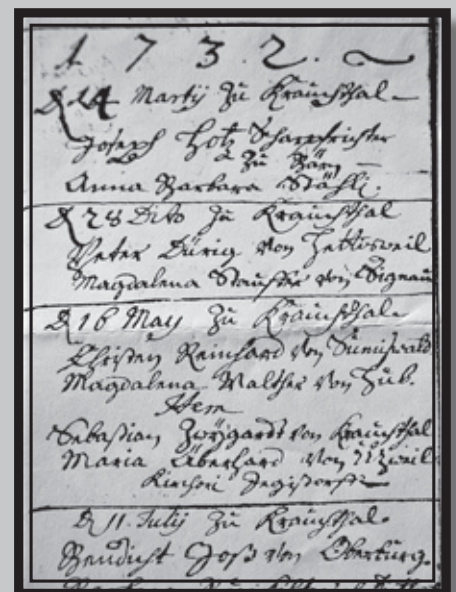 1732.
D. 14 Martij zu Krauchthal
Joseph Hotz Scharpfrichter
zu Bärn
Anna Barbara Stähli.
D. 28 Dito zu Krauchthal
Peter Dürig von Jettisweil
Magdalena Stauffer von Signau
D. 16 May zu Krauchthal
Christen Reinhard von Sumiswald
Magdalena Walther von
Item
Sebastian von Krauchthal
Maria Äberhard von
D. 11. Julij zu Krauchthal
Bendicht Joss von Oberburg.